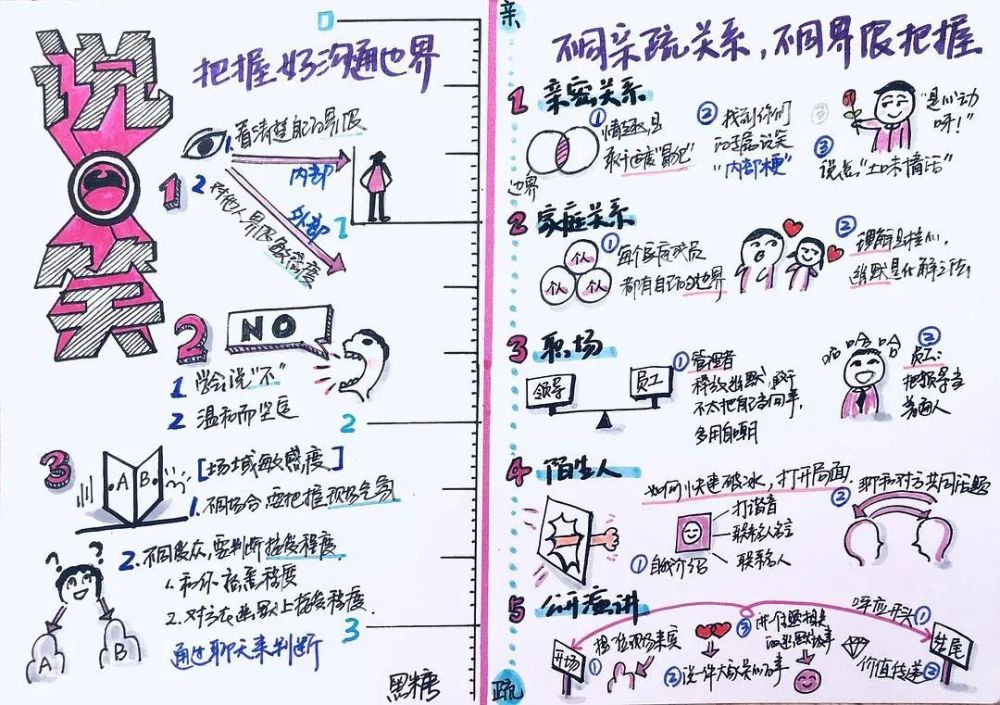 说笑
把握好沟通边界
1
1.看清楚自己的界限
内部
2 对他人界限敏感度
外部
0
1
2
3
2
NO
1 学会说“不”
2 温和而坚定
3
A B
[场域敏感度]
1.不同场合要把握现场气氛
2.不同受众,要判断接受程度
1.和你熟悉程度
2.对方在幽默上接受程度.
通过聊天来判断
? ?
A B
黑糖
亲
疏
不同亲疏关系,不同界限把握
1 亲密关系
边界
①情趣是
②找到你们
的专属说笑
“内部梗”
③
说点“土味情话”
“是心动
呀!”
2 家庭关系
个人 个人 个人
①每个家庭成员
都有自己的边界
②理解是桂冠,
幽默是化解之法!
3 职场
领导 员工
①管理者
释放幽默,敢于
不太把自己当回事,
多用自嘲
哈哈哈
②员工:
把领导当
普通人
4 陌生人
如何快速破冰,打开局面.
①自我介绍
打谐音
联系名言
联系名人
②聊和对方共同话题
5 公开演讲
开场
①接位现场来宾
②说一件大家关心的事
③讲一个跟主题相关
的幽默故事
呼应开头①
结尾
价值传递②